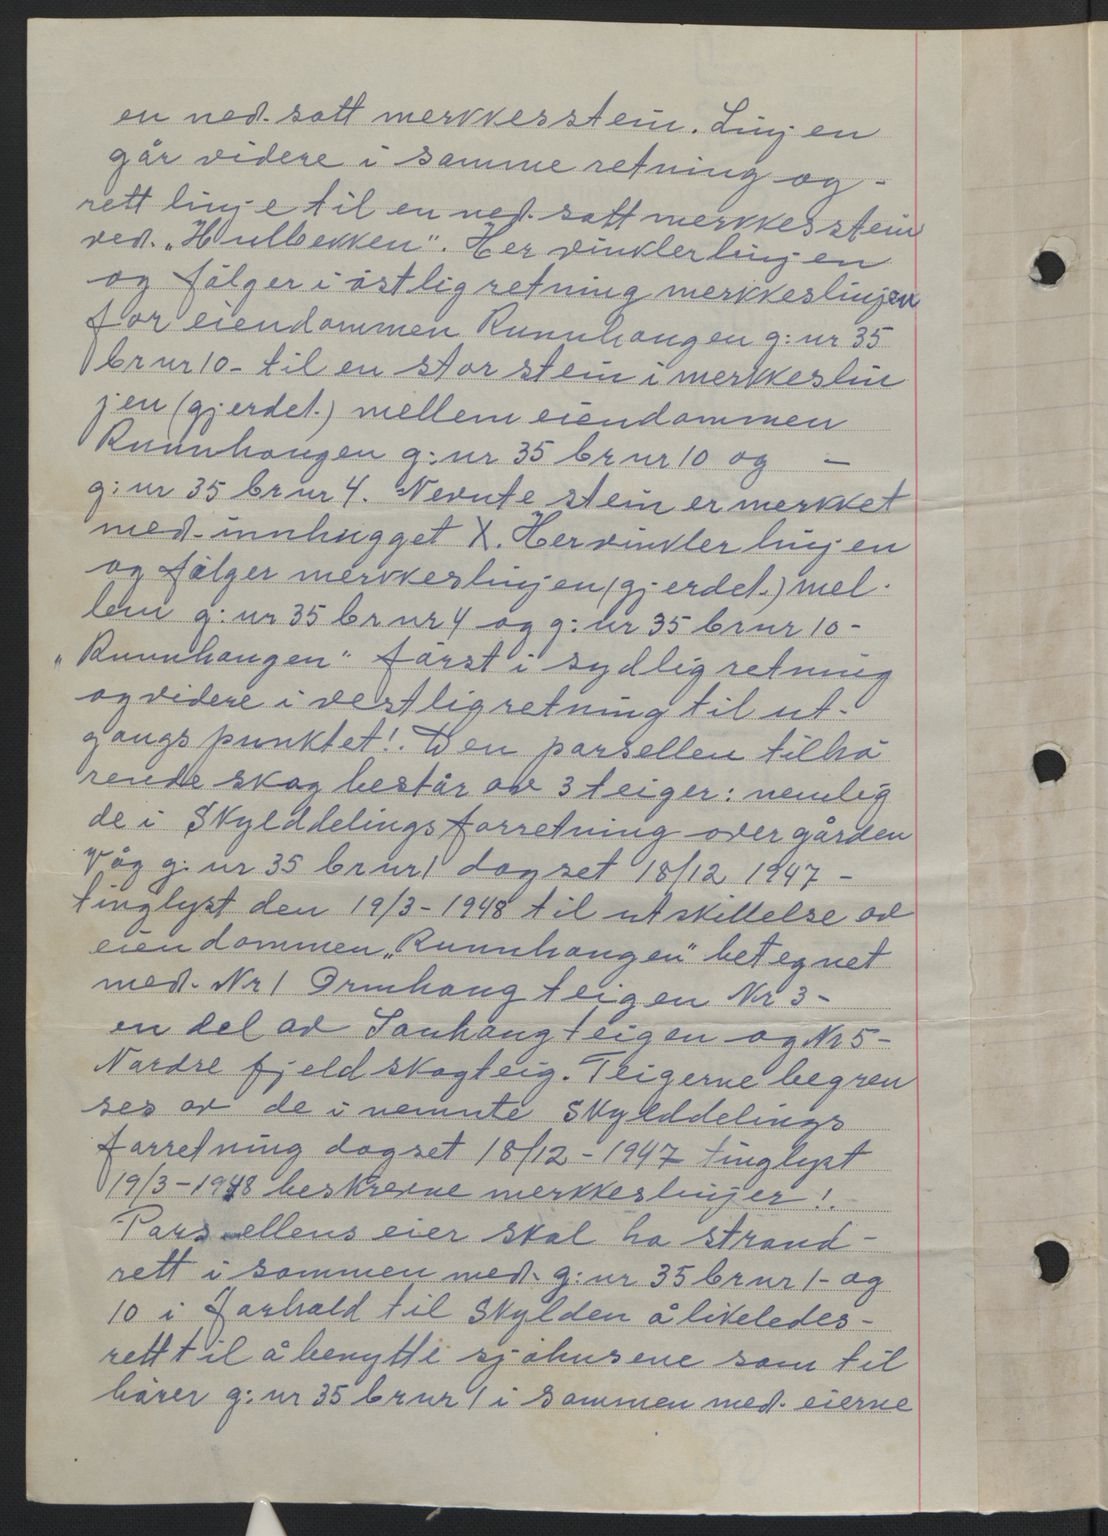 en ned. satt merkkesstein. Linjen
går videre i samme retning og -
rett linje til en ned. satt merkkesstein
ved. „Hulbekken". Her vinkler linjen
og følger i østlig retning merkkeslinjen
for eiendommen Runnhaugen g: nr 35
br nr 10 - til en stor stein i merkkeslin
jen (gjerdet.) mellem eiendommen
Runnhaugen g: nr 35 br nr 10 og -
g: nr 35 br nr 4. Nevnte stein er merkket
med. innhugget X. Her vinkler linjen
og følger merkkeslinjen (gjerdet.) mel-
lem g: nr 35 br nr 4 og g: nr 35 br nr 10 -
„Runnhaugen" først i sydlig retning
og videre i vestlig retning til ut-
gangspunktet!. Den parsellen tilhø
rende skog består av 3 teiger: nemlig
de i Skylddelingsforretning over gården
Våg g: nr 35 br nr 1 dagset 18/12 1947 -
tinglyst den 19/3 - 1948 til utskillelse av
eiendommen „Runnhaugen" betegnet
med. Nr 1 Ormhaugteigen Nr 3 -
en del av Sauhaugteigen og Nr 5 -
Nordre fjeldskogteig. Teigerne begren
ses av de i nemnte Skylddelings
forretning dagset 18/12 - 1947 tinglyst
19/3 - 1948 beskrevne merkkeslinjer!.
Parsellens eier skal ha strand-
rett i sammen med. g: nr 35 br nr 1 - og
10 i forhold til Skylden å likeledes -
rett til å benytte sjøhusene som til
hører g: nr 35 br nr 1 i sammen med. eierne